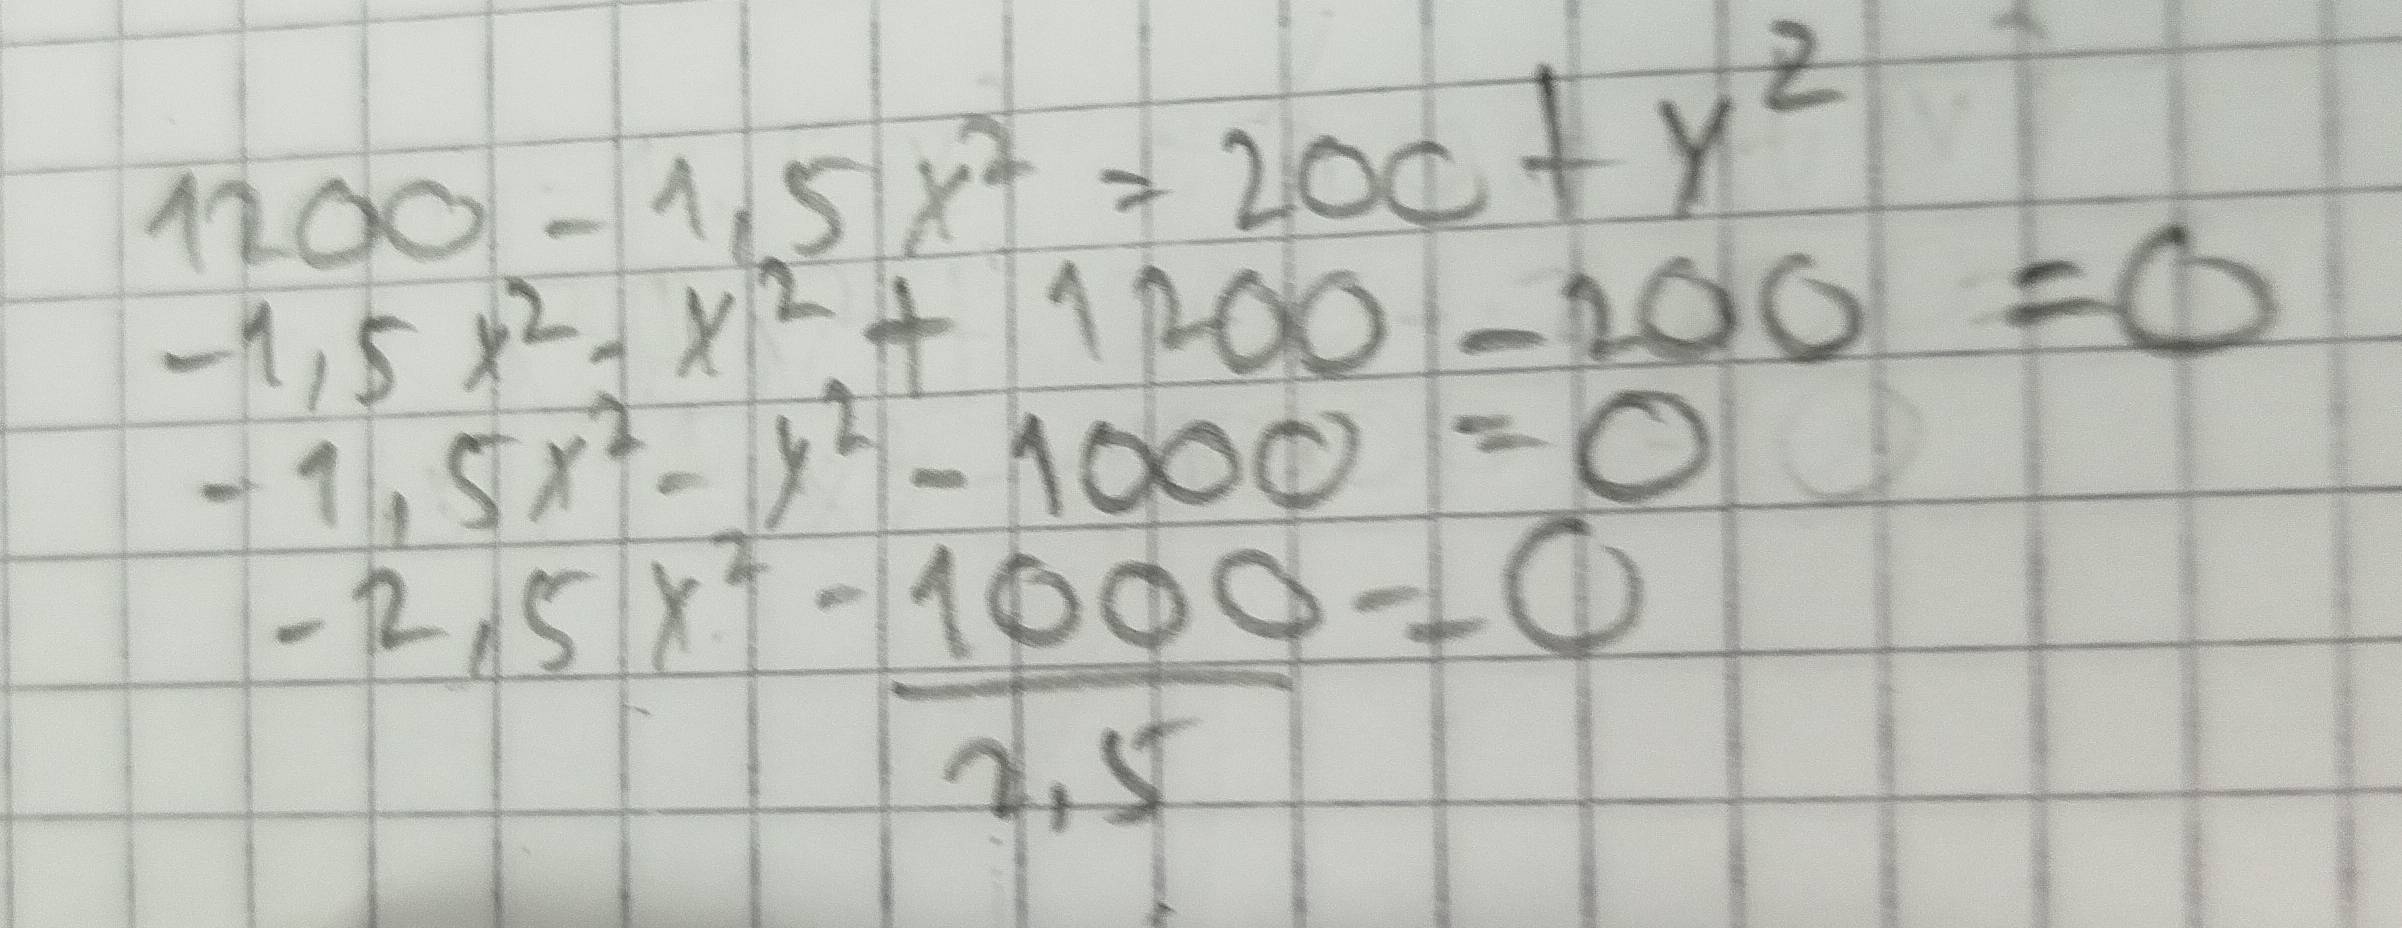 1200 - 1,5x² = 200 + x²
-1,5x² - x² + 1200 - 200 = 0
-1,5x² - x² - 1000 = 0
-2,5x² - 1000 = 0
2,5